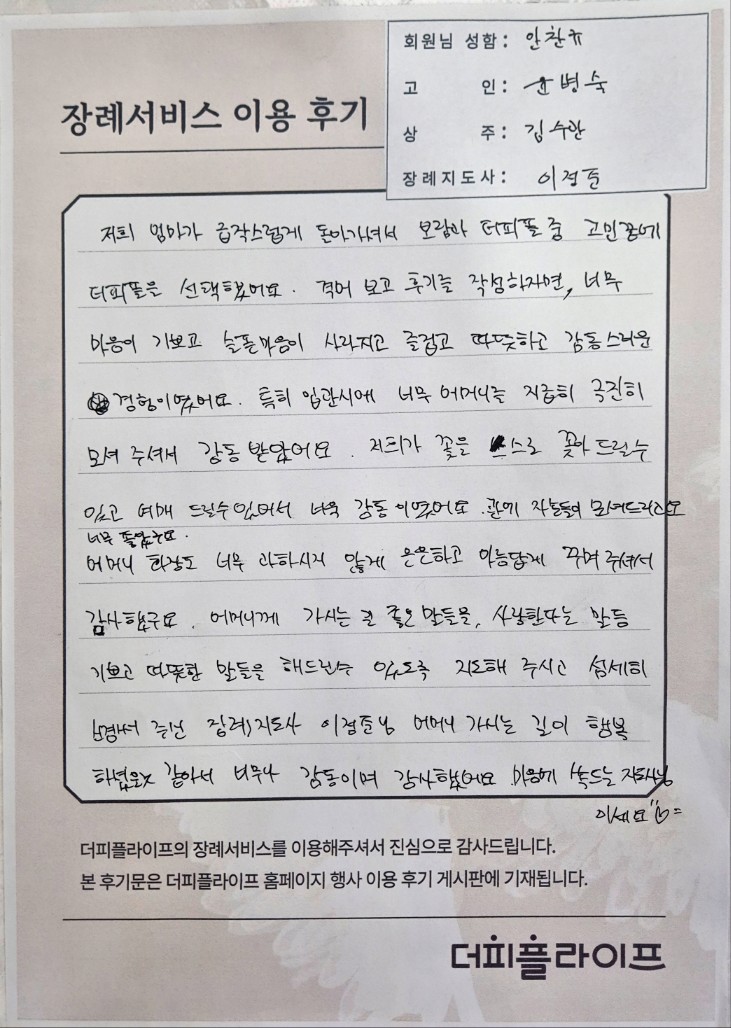 회원님 성함: 안찬규
고 인: 윤병숙
상 주: 김수관
장례지도사: 이정준
장례서비스 이용 후기
저희 엄마가 급작스럽게 돌아가셔서 보람과 더피플 중 고민끝에
더피플을 선택했어요. 격어 보고 후기를 작성하자면, 너무
마음이 기쁘고 슬픈마음이 사라지고 즐겁고 따뜻하고 감동스러운
경험이였어요. 특히 입관시에 너무 어머니를 지극히 극진히
모셔 주셔서 감동 받았어요. 저희가 꽃을 스스로 꽂아 드릴수
있고 여매 드릴수 있어서 너무 감동이였어요. 관에 자녀들이 모여드리고요
너무 좋았구요.
어머니 화장도 너무 과하시지 않게 은은하고 아름답게 꾸며 주셔서
감사했구요. 어머니께 가시는 길 좋은 말들을, 사랑한다는 말등
기쁘고 따뜻한 말들을 해드릴수 있도록 지도해 주시고 섬세히
설명해 주신 장례지도사 이정준님 어머니 가시는 길이 행복
하셨을것 같아서 너무나 감동이며 감사했어요 마음에 쏙드는 지도사님
이세요
더피플라이프의 장례서비스를 이용해주셔서 진심으로 감사드립니다.
본 후기문은 더피플라이프 홈페이지 행사 이용 후기 게시판에 기재됩니다.
더피플라이프